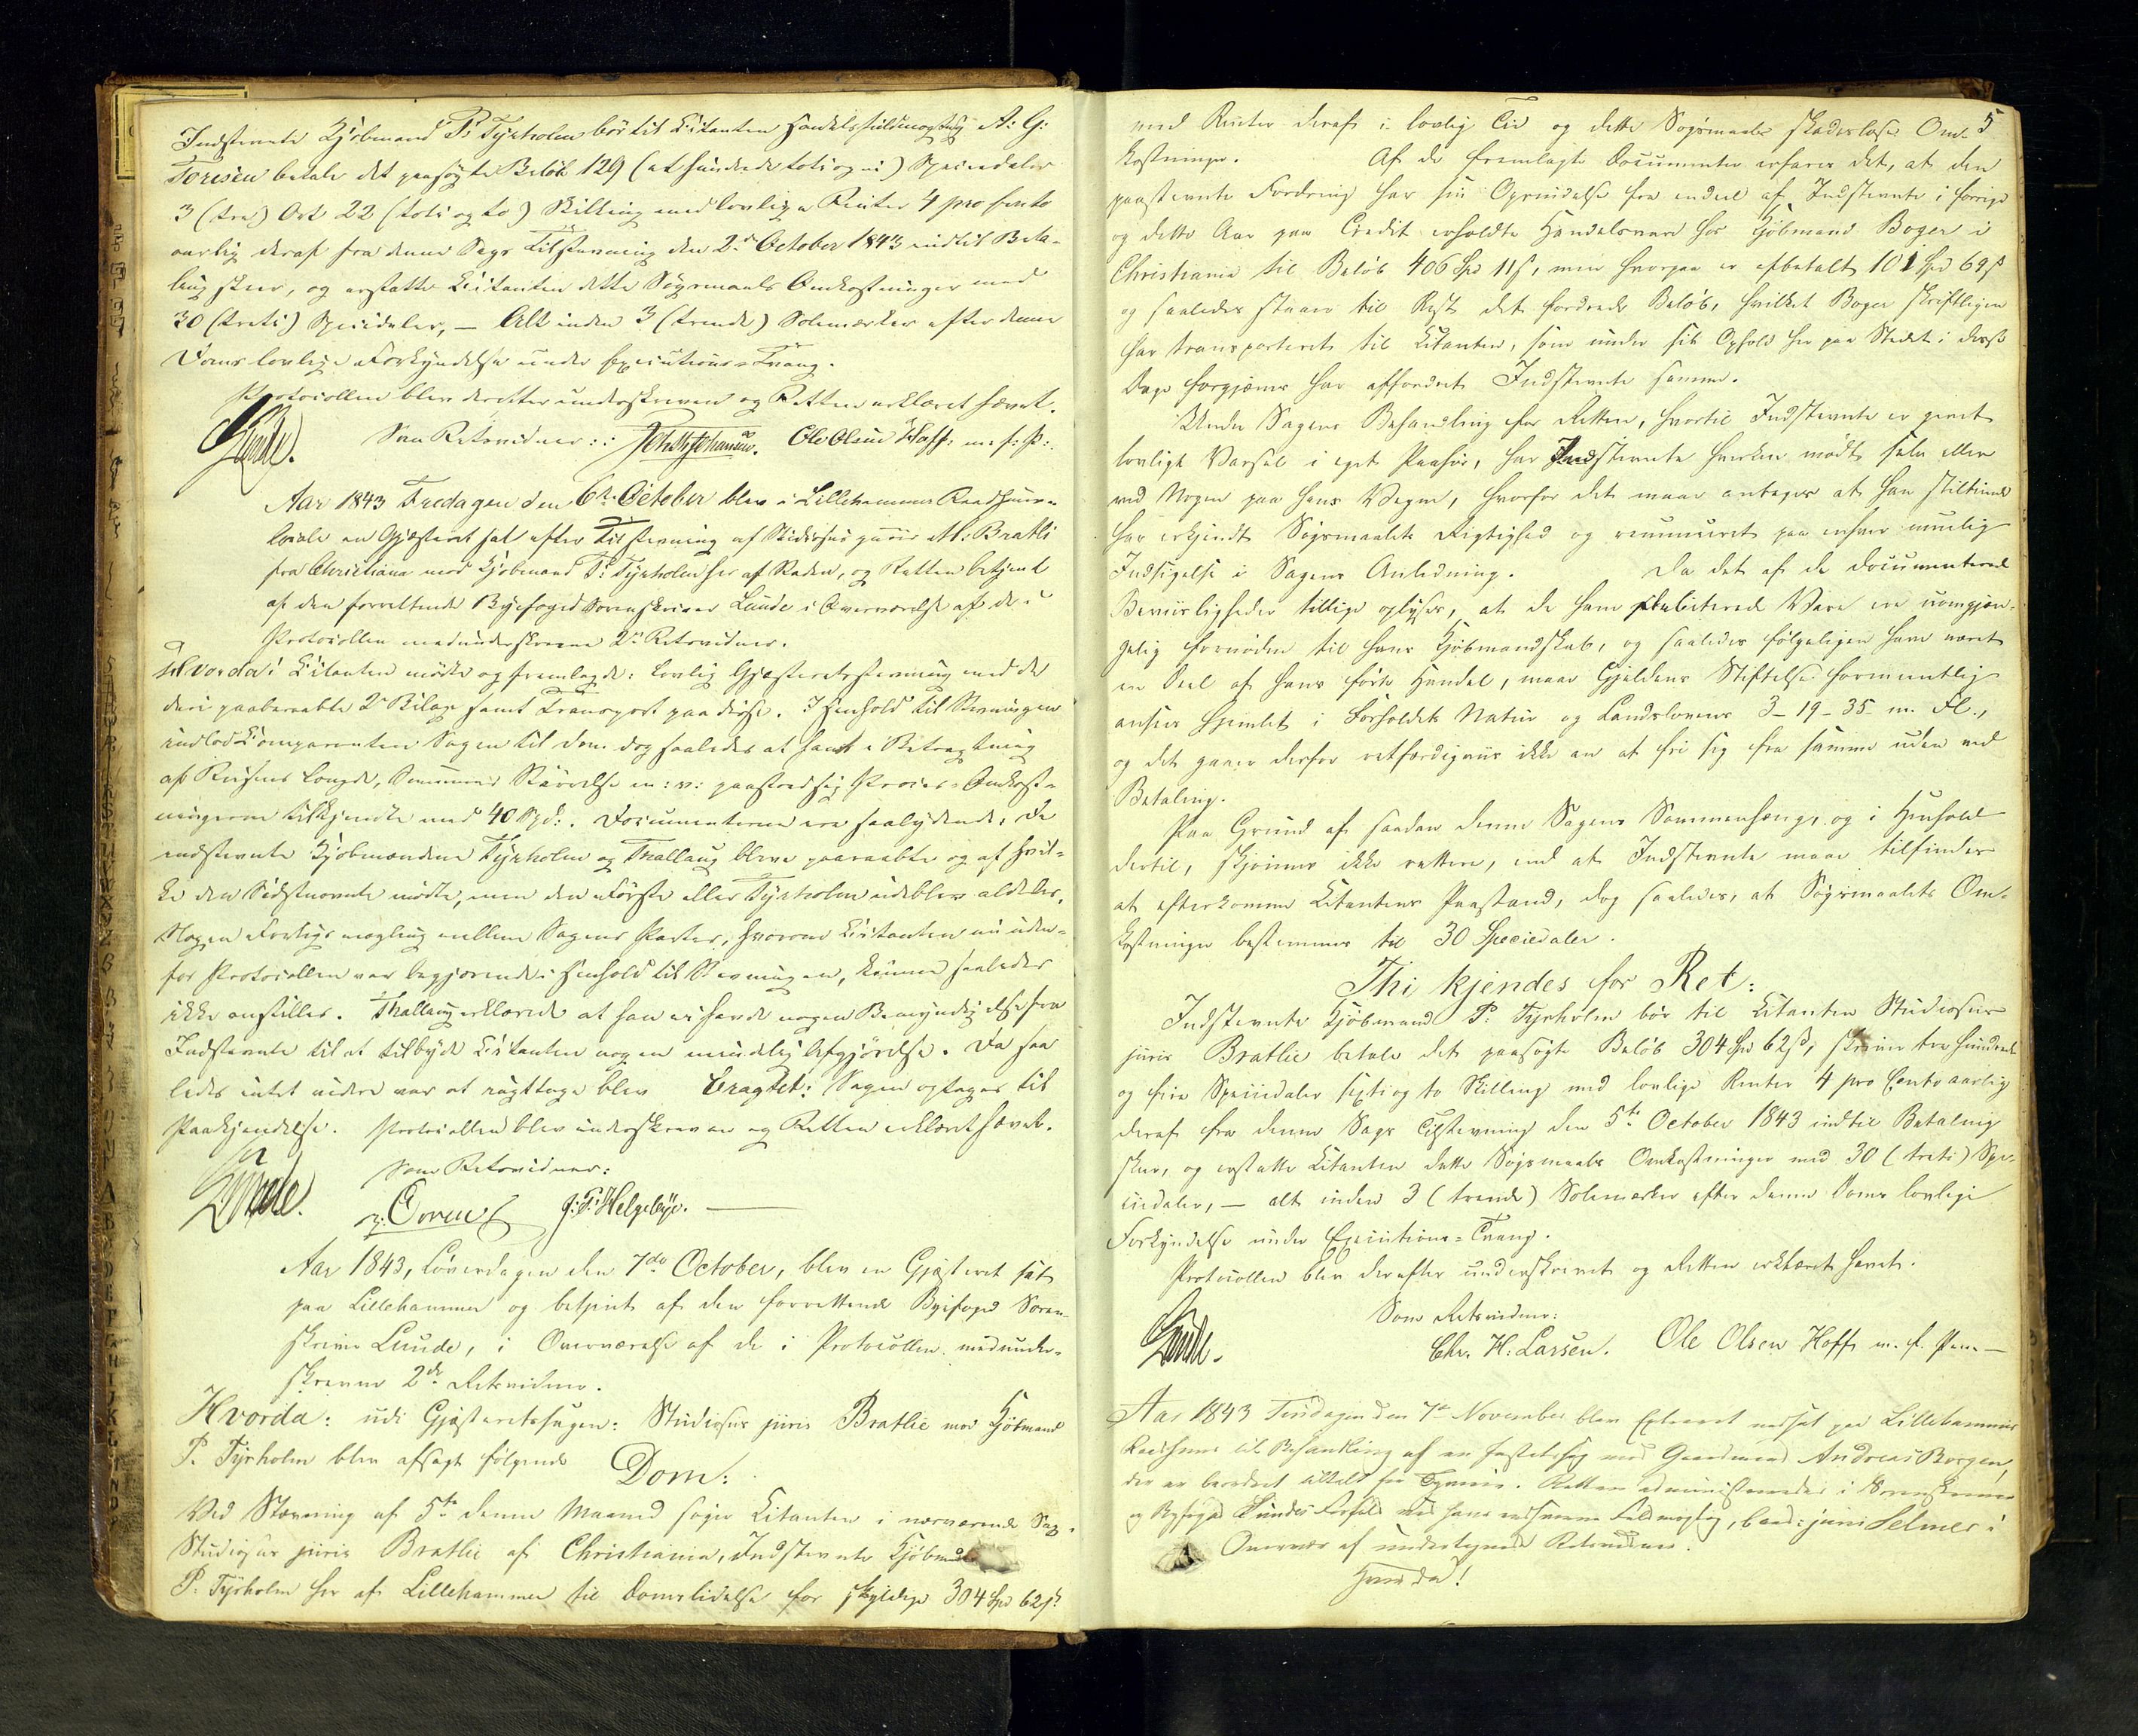 Indstevnte Kjöbmand P: Tyrholm bör til Citanten Handelsfuldmægtig A: G:
Toresen betale det paasögte Belöb 129 (et hundrede toti og ni) Speciedaler
3 (tre) Ort 22 (toti og to) Skilling med lovlige Renter 4 pro Cento
aarlig deraf fra denne Sags Tilstevning den 2d October 1843 indtil Beta-
ling skeer, og erstatte Citanten dette Sögsmaals Omkostninger med
30 (treti) Speciedaler, – Alt inden 3 (trende) Solemærker efter denne
Doms lovlige Forkyndelse under Executions-Tvang.
Protocollen blev derefter underskreven og Retten erklæret hævet.
Lunde. Som Retsvidner: Johs Johansen. Ole Olsen Hoff: m: f: P:
Aar 1843 Fredagen den 6te October blev i Lillehammer Raadhuus-
locale en Gjæsteret sat efter Tilstevning af Studiosus juris M: Bratli
fra Christiania mod Kjöbmand P: Tyrholm her af Staden, og Retten betjent
af den forrettende Byefoged Sorenskriver Lunde i Overværelse af de i
Protocollen medunderskrevne 2de Retsvidner.
Hvorda! Citanten mödte og fremlagde: lovlig Gjæsteretsstevning med de
deri paaberaabte 2de Bilage samt Transport paa disse. I Henhold til Stevningen
indlod Comparenten Sagen til Dom dog saaledes at han i Betragtning
af Reisens Længde, Summens Störrelse m: v: paastod sig Proces-Omkost-
ningerne tilkjendte med 40 Spd:. Documenterne ere saalydende: De
indstevnte Kjöbmændene Tyrholm og Thallaug bleve paaraabte og af hvil-
ke den Sidstnævnte mödte, men den Förste eller Tyrholm udeblev aldeles.
Nogen Forligsmægling mellem Sagens Parter, hvorom Citanten nu uden-
for Protocollen var begjerende i Henhold til Stevningen, kunne saaledes
ikke anstilles. Thallaug erklærede at han ei havde nogen Bemyndigelse fra
Indstevnte til at tilbyde Citanten nogen mindelig Afgjörelse. Da saa-
ledes intet videre var at iagttage blev Eragtet: Sagen optages til
Paakjendelse. Protocollen blev underskreven og Retten erklæret hævet.
Lunde. Som Retsvidner:
J: P: Helgeløye.
Aar 1843, Löverdagen den 7de October, blev en Gjæsteret sat
paa Lillehammer og betjent af den forrettende Byefoged Soren-
skriver Lunde, i Overværelse af de i Protocollen medunder-
skrevne 2de Retsvidner.
Hvorda: udi Gjæsteretssagen: Studiosus juris Bratlie mod Kjöbmand
P. Tyrholm blev afsagt fölgende Dom:
Ved Stævning af 5te denne Maaned söger Citanten i nærværende Sag,
Studiosus juris Bratlie af Christiania, Indstevnte Kjöbmand
P. Tyrholm her af Lillehammer til Domslidelse for skyldige 304 Spd 62 ß
5
med Renter deraf i lovlig Tid og dette Sögsmaals skadeslöse Om-
kostninger. Af de fremlagte Documenter erfares det, at den
paastevnte Fordring har sin Oprindelse fra endeel af Indstevnte i forrige
og dette Aar paa Credit erholdte Handelsvare hos Kjöbmand Boger i
Christiania til Belöb 406 Spd 11 ß, men hvorpaa er afbetalt 101 Spd 69 ß
og saaledes staaer til Rest det fordrede Belöb, hvilket Boger skriftligen
har transporteret til Citanten, som under sit Ophold her paa Stedet i disse
Dage forgjæves har affordret Indstevnte samme.
Under Sagens Behandling for Retten, hvortil Indstevnte er givet
lovligt Varsel i eget Paahör, har Indstevnte hverken mödt selv eller
ved Nogen paa hans Vegne, hvorfor det maae antages at han stiltiende
har erkjendt Sögsmaalets Rigtighed og renunceret paa enhver muelig
Indsigelse i Sagens Anledning. Da det af de documenterede
Beviisligheder tillige oplyses, at de ham creditterede Vare ere uomgjæn-
gelig fornöden til hans Kjöbmandskab, og saaledes fölgeligen have været
en Deel af hans förte Handel, maae Gjeldens Stiftelse formeentlig
ansees hjemlet i Forholdets Natur og Landslovens 3-19-35 m. Fl.,
og det gaaer derfor retfærdigviis ikke an at fri sig fra samme uden ved
Betaling.
Paa Grund af saadan denne Sagens Sammenhæng, og i Henhold
dertil, skjönnes ikke rettere, end at Indstevnte maae tilfindes
at efterkomme Citantens Paastand, dog saaledes, at Sögsmaalets Om-
kostninger bestemmes til 30 Speciedaler.
Thi kjendes for Ret:
Indstevnte Kjöbmand P: Tyrholm bör til Citanten Studiosus
juris Bratlie betale det paasögte Belöb 304 Spd 62 ß, skriver tre hundrede
og fire Speciedaler sexti og to Skilling med lovlige Renter 4 pro Cento aarlig
deraf fra denne Sags Tilstevning den 5te October 1843 indtil Betaling
skeer, og erstatte Citanten dette Sögsmaals Omkostninger med 30 (treti) Spe-
ciedaler, – alt inden 3 (trende) Solemærker efter denne Doms lovlige
Forkyndelse under Executions-Tvang.
Protocollen blev derefter underskrevet og Retten erklæret hævet.
Som Retsvidner:
Lunde. Chr. H: Larsen. Ole Olsen Hoff m. f. Pen –
Aar 1843 Tirsdagen den 7de November blev Extraret nedsat paa Lillehammer
Raadhuus til Behandling af en Justitssag mod Gaardmand Andreas Borgen,
der er beordret tiltalt for Tyverie. Retten administreredes i Sorenskriver
og Byfoged Lundes Forfald ved hans Fuldmægtig, Cand: juris Selmer i
Overvær af undertegnede Retsvidner.
Hvorda!